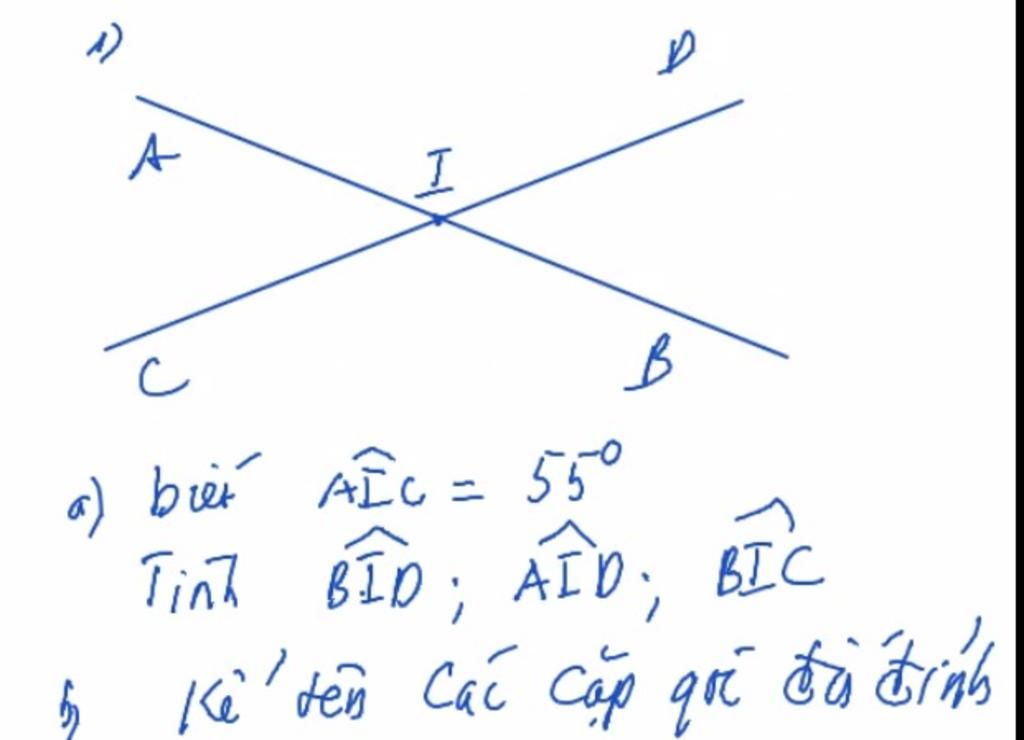 1)
D
A
I
C
B
a) biết AÎC = 55°
Tính BÎD ; AÎD ; BÎC
b) Kể tên các cặp góc đối đỉnh